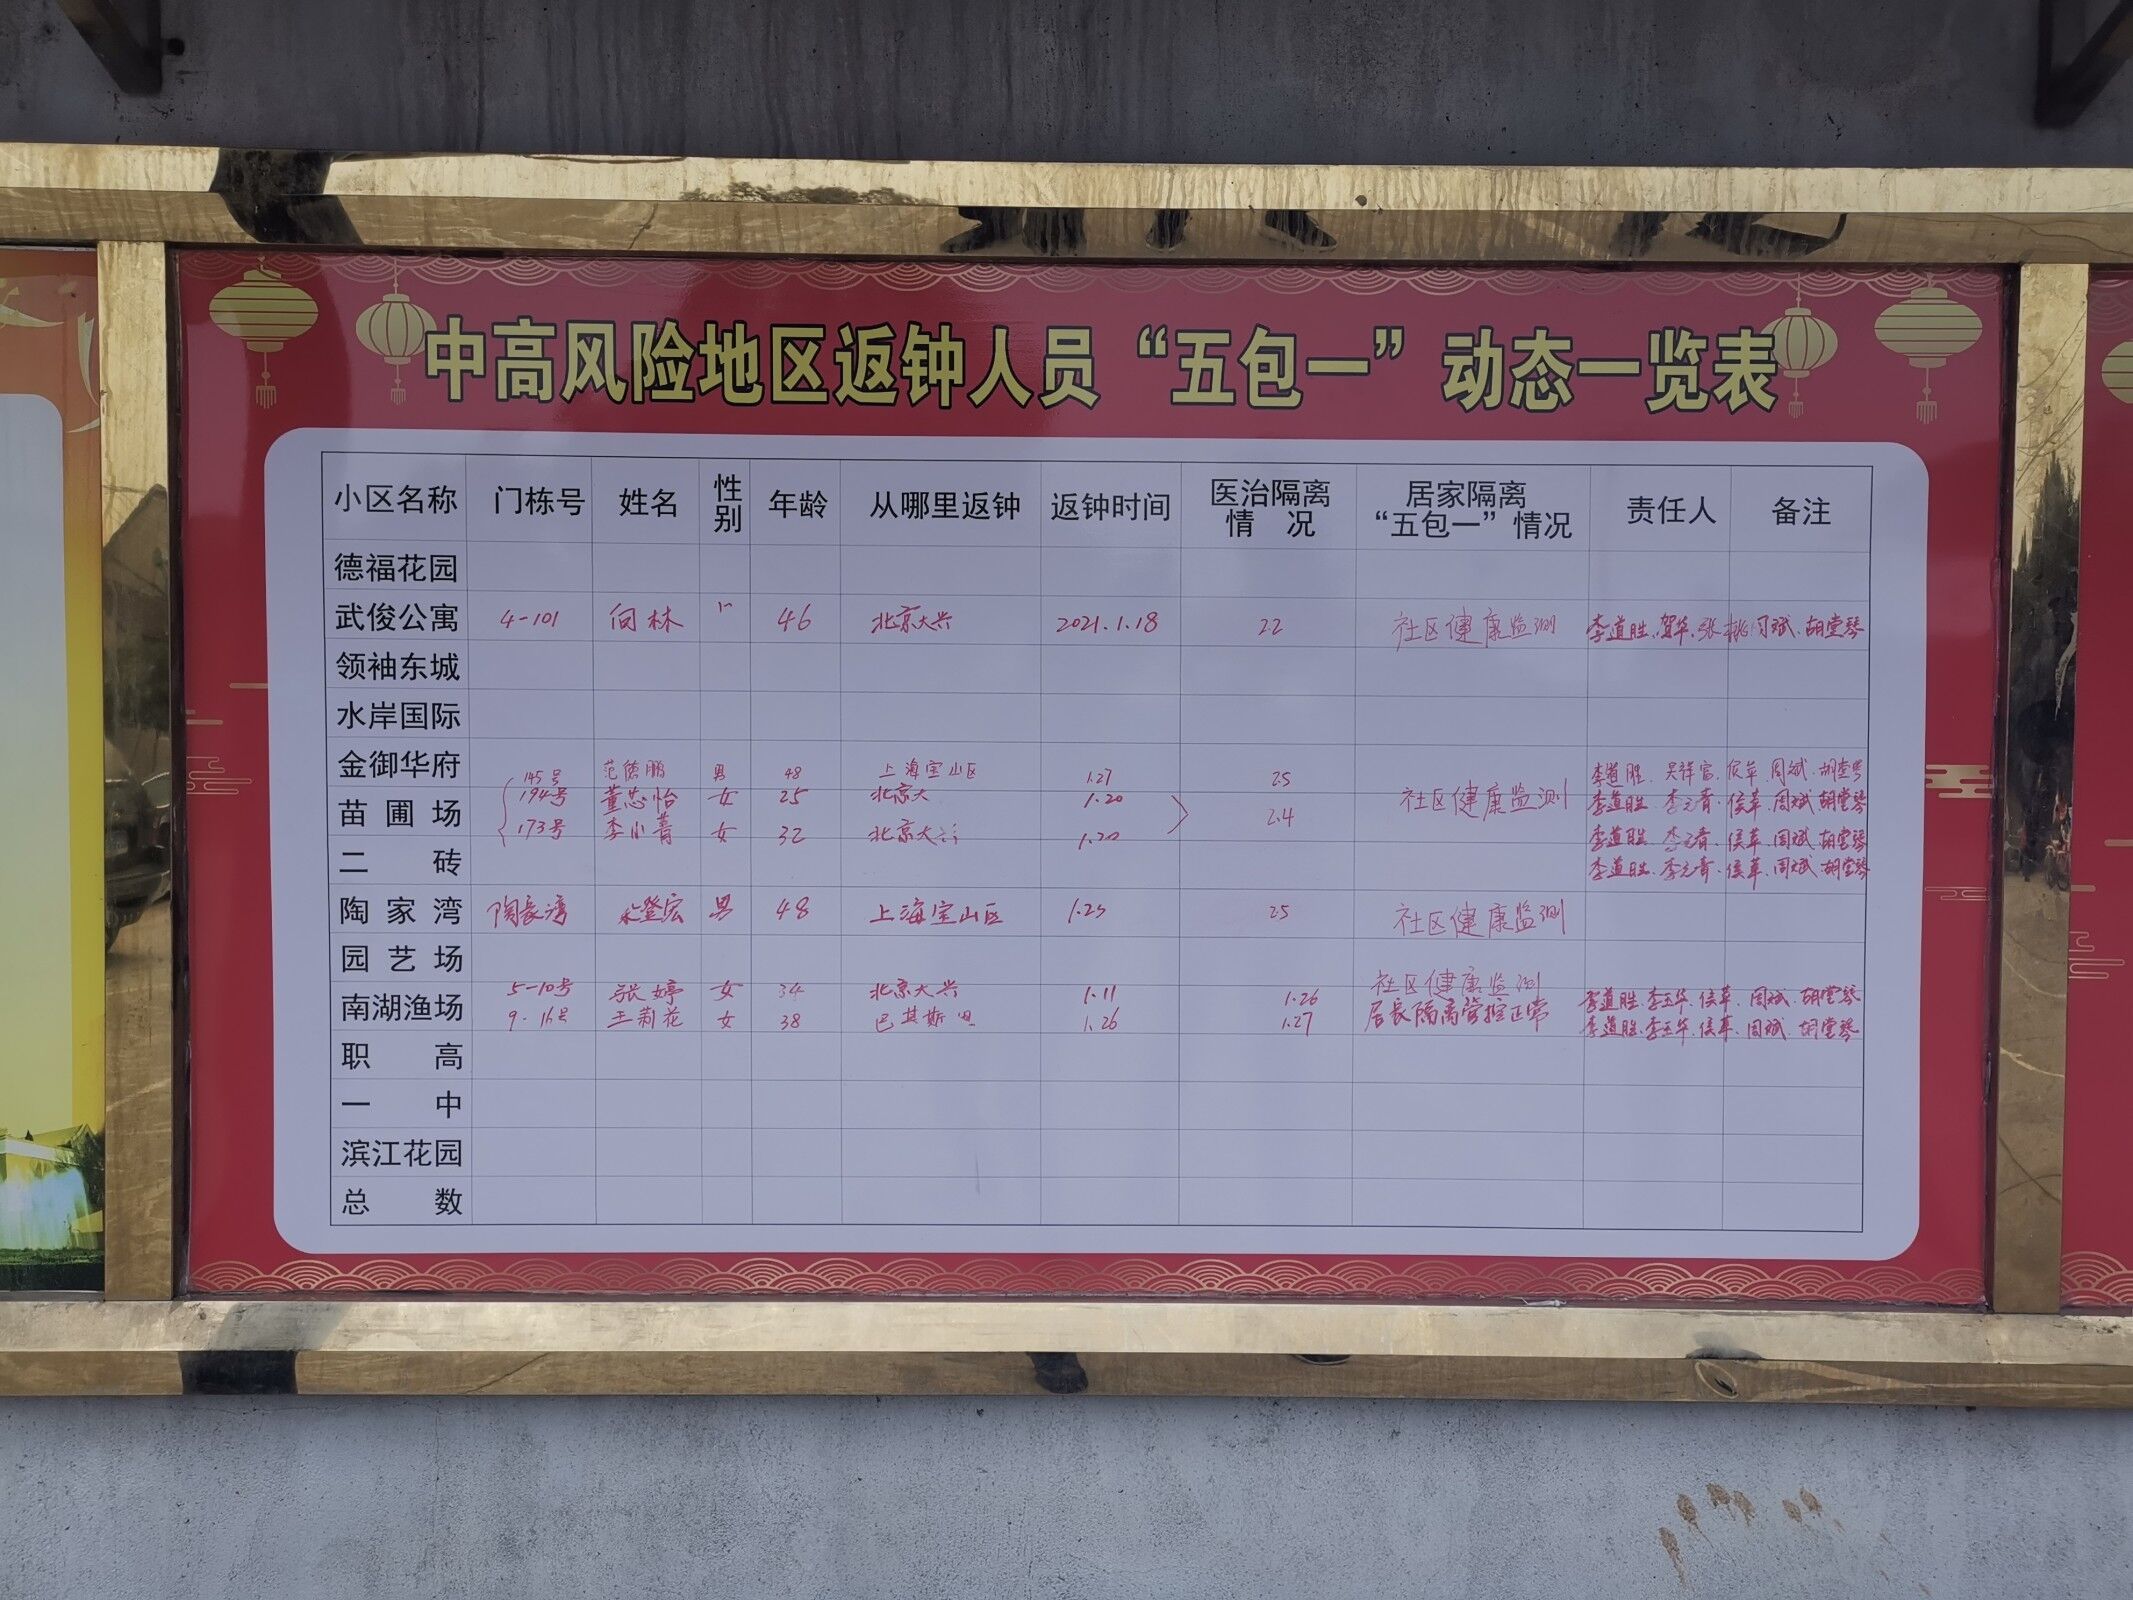 中高风险地区返钟人员“五包一”动态一览表
小区名称 门栋号 姓名 性别 年龄 从哪里返钟 返钟时间 医治隔离情况 居家隔离“五包一”情况 责任人 备注
德福花园
武俊公寓 4-101 向林 46 北京大兴 2021.1.18 22 社区健康监测 李道胜.贺华.张 斌.胡堂琴
领袖东城
水岸国际
金御华府
145号 范德鹏 男 48 上海宝山区 1.27 25 李道胜. 吴祥富. 侯军.周斌.胡堂琴
苗圃场 194号 董芯怡 女 25 北京大 1.20 24 社区健康监测 李道胜. 李元青.侯革.周斌.胡堂琴
173号 李小菁 女 32 北京大 1.20 李道胜. 李元青.侯革.周斌.胡堂琴
二砖 李道胜.李元青.侯革.周斌.胡堂琴
陶家湾 陶家湾 登宏 男 48 上海宝山区 1.25 25 社区健康监测
园艺场
5-10号 张婷 女 34 北京大兴 1.11 1.26 社区健康监测 李道胜.李玉华.侯革.周斌.胡堂琴
南湖渔场 9-16号 王莉花 女 38 巴基斯坦 1.26 1.27 居家隔离管控正常 李道胜.李玉华.侯革.周斌.胡堂琴
职高
一中
滨江花园
总数